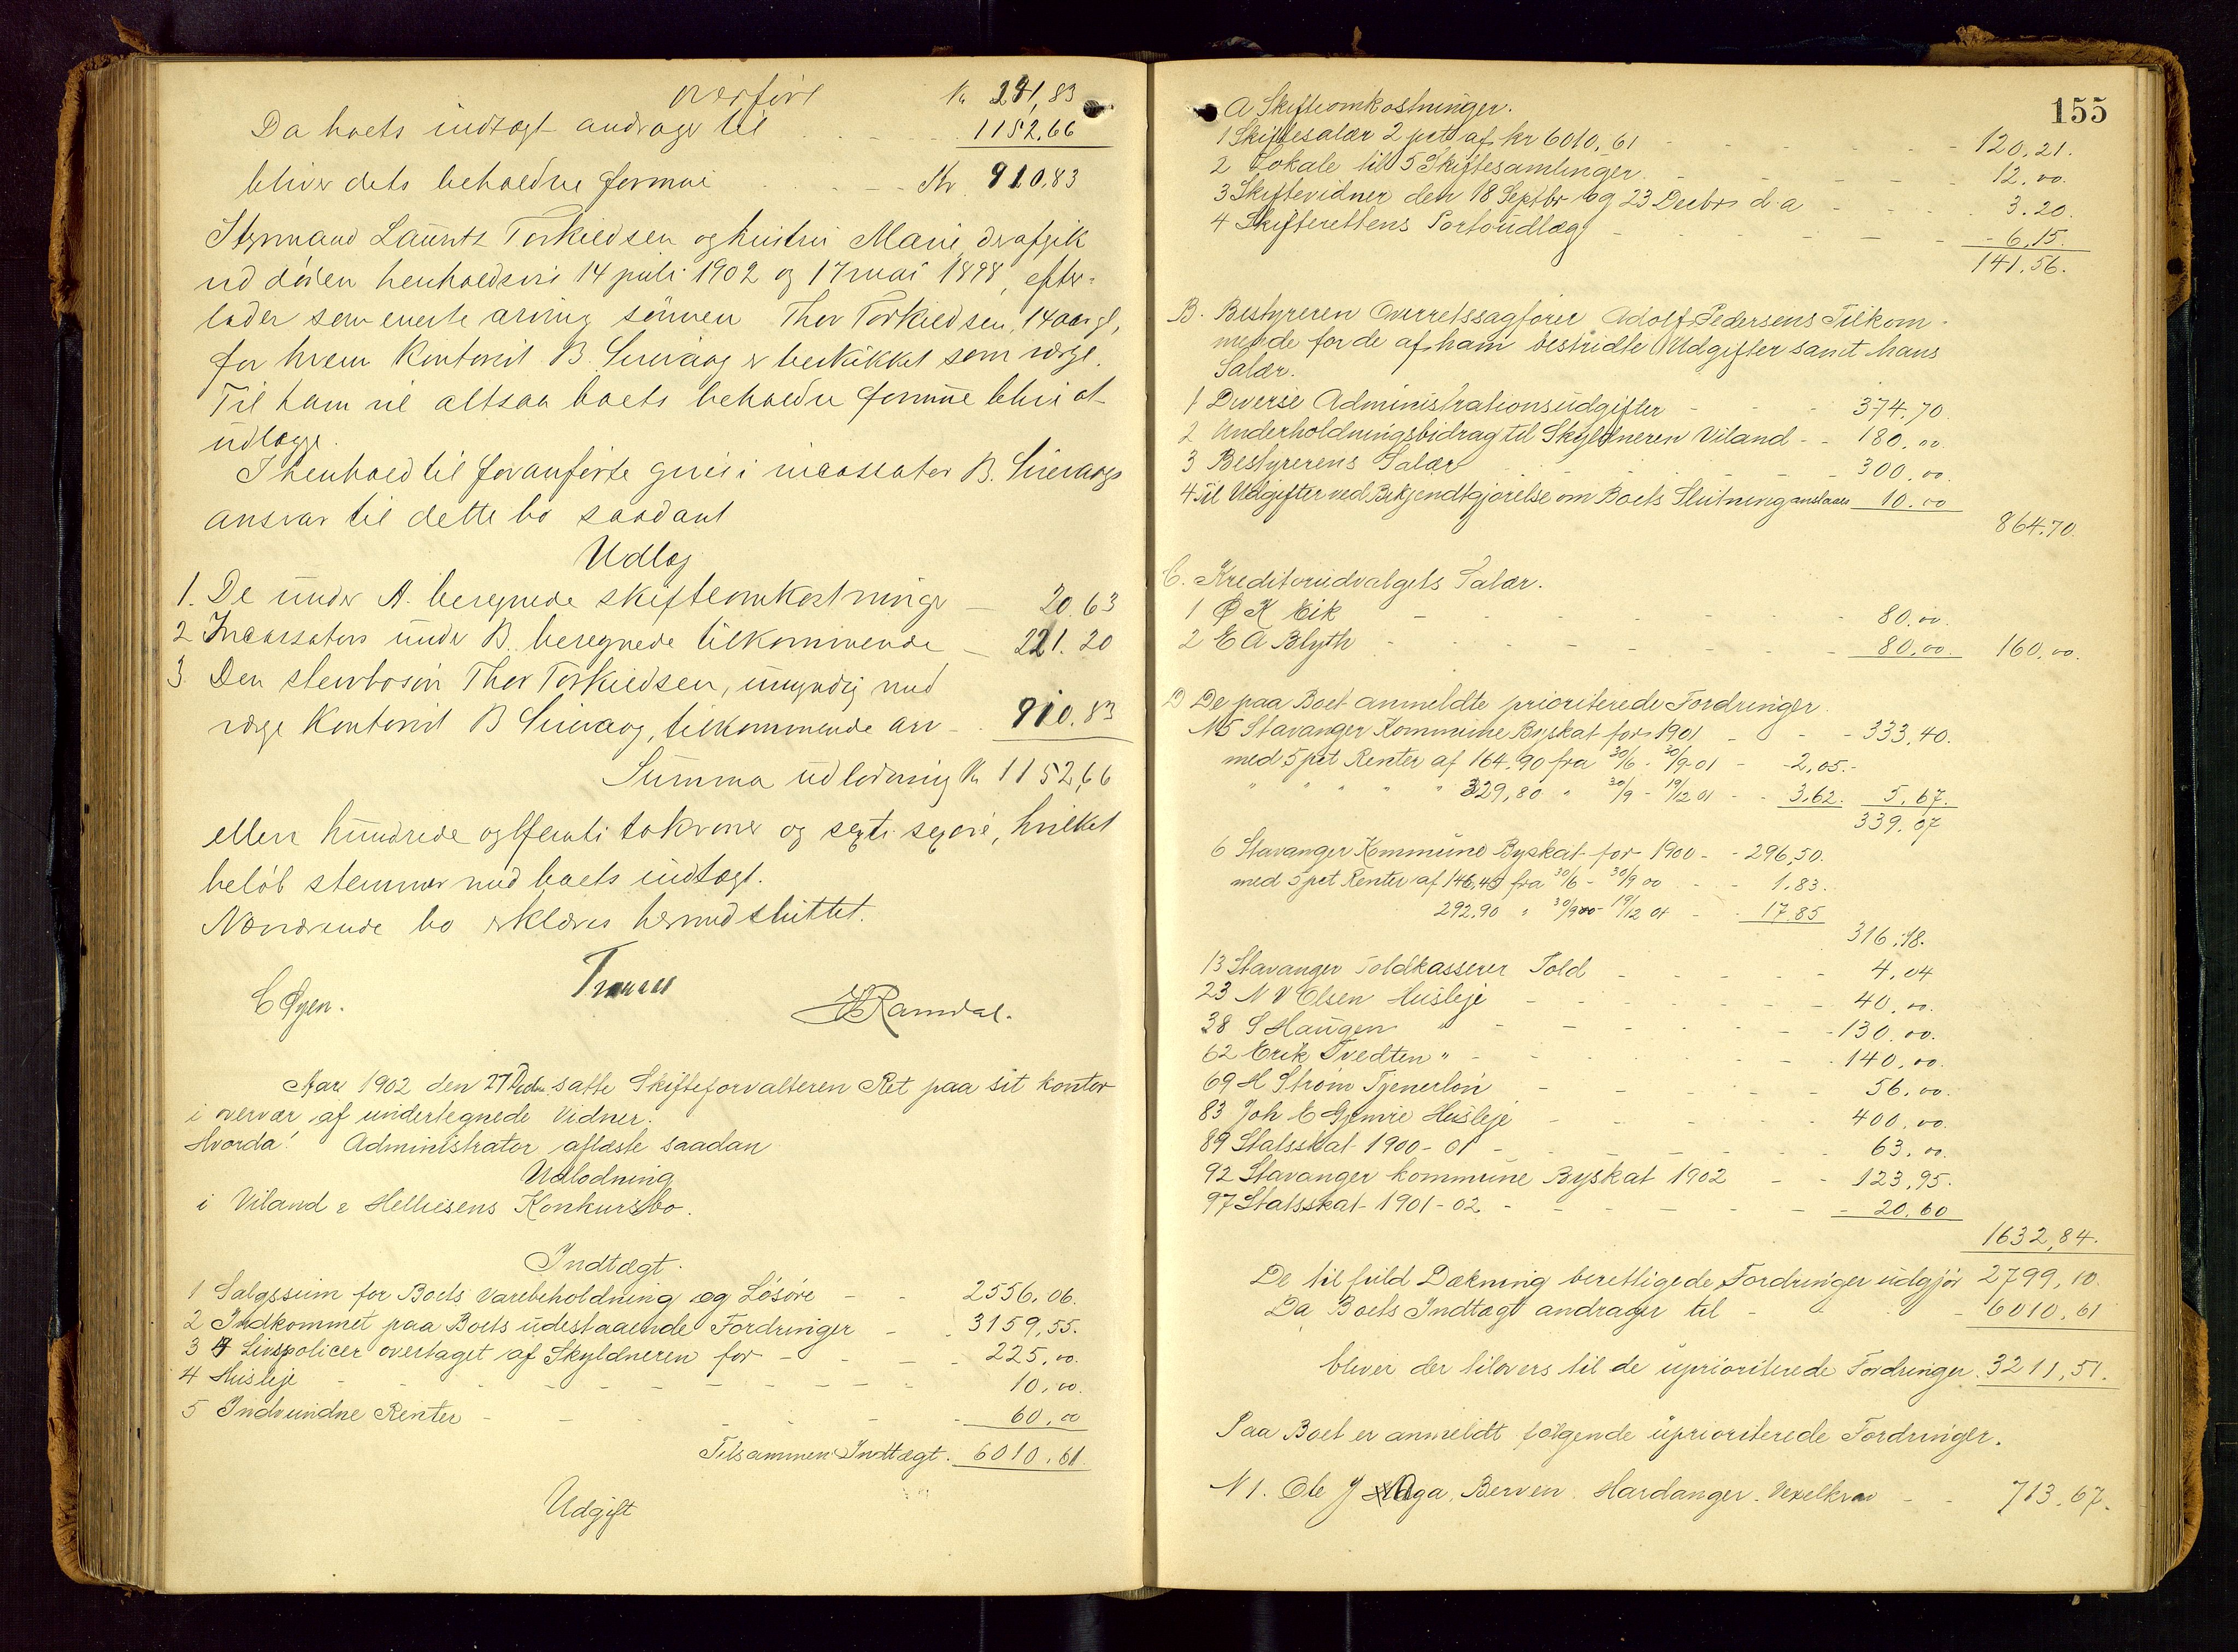 overført Kr 241,83
Da boets indtægt andrager til 1152.66
bliver dets beholdne formue Kr 910,83
Styrmand Lauritz Torkildsen og hustru Marie, der afgik
ved døden henholdsvis 14 juli 1902 og 17 mai 1898, efter-
lader som eneste arving sønnen Thor Torkildsen, 14 aar gl,
for hvem Kontorist B. Sirevaag er beskikket som værge.
Til ham vil altsaa boets beholdne formue blive at
udlægge.
I henhold til foranførte gives i incassator B. Sirevaags
ansvar til dette bo saadant
Udlæg
1. De under A. beregnede skifteomkostninger — 20.63
2 Incassators under B. beregnede tilkommende — 221.20
3. Den stervbosøn Thor Torkildsen, umyndig med
værge Kontorist B Sirevaag, tilkommende arv - 910.83
Summa udlodning Kr 1152,66
elleve hundrede og femti to kroner og sexti sex øre, hvilket
beløb stemmer med boets indtægt.
Nærværende bo erklæres hermed sluttet.
C Øyen. HRamdal.
Aar 1902 den 27 Decbr. satte Skifteforvalteren Ret paa sit kontor
i overvær af undertegnede Vidner.
Hvorda! Administrator aflæste saadan
Udlodning
i Viland & Helliesens Konkursbo.
Indtægt.
1 Salgssum for Boets Varebeholdning og Løsøre - - 2556.06.
2 Indkommet paa Boets udestaaende Fordringer - - 3159,55.
3 4 Livspolicer overtaget af Skyldneren for - - - - 225,00.
4 Husleje - - - - 10,00.
5 Indvundne Renter - - - - 60,00
Tilsammen Indtægt. 6010,61.
Udgift
155
A Skifteomkostninger.
1 Skiftesalær 2 pct af kr 6010,61 - - - 120,21.
2 Lokale til 5 Skiftesamlinger. - - - 12.00.
3 Skiftevidner den 18 Septbr og 23 Decbr d.a - - - 3.20.
4 Skifterettens Portoudlæg - - - 6,15.
141.56.
B. Bestyreren Overretssagfører Adolf Pedersens Tilkom-
mende for de af ham bestridte Udgifter samt hans
Salær.
1 Diverse Administrationsudgifter - - - 374,70.
2 Underholdningsbidrag til Skyldneren Viland - - 180,00
3 Bestyrerens Salær - - - 300,00.
4 Til Udgifter ved Bekjendtgjørelse om Boets Slutning anslaaes 10.00
864.70.
C. Kreditorudvalgets Salær.
1 O K Eik - - - 80.00.
2 E A Blyth - - - 80,00. 160,00.
D De paa Boet anmeldte prioriterede Fordringer.
N5 Stavanger Kommune Byskat for 1901 - - - 333,40.
med 5 pct Renter af 164.90 fra 30/6 - 30/9 01 - - 2,05.-
" " " " " 329,80 " 30/9 - 19/12 01 - - 3.62. 5,67.
339.07
6 Stavanger Kommune Byskat for 1900 - - 296,50.
med 5 pct Renter af 146,45 fra 30/6 - 30/9 00 - - 1.83.
292.90 " 30/9 00 - 19/12 01 - - 17.85
316.18.
13 Stavanger Toldkasserer Told - - - 4,04
23 N V Olsen Husleje - - - 40,00.
38 S Haugen " - - - 130,00.
62 Erik Tvedten " - - - 140,00.
69 H Strøm Tjenerløn - - - 56,00.
83 Joh E Gjemre Husleje - - - 400,00.
89 Statsskat 1900-01 - - - 63.00.
92 Stavanger kommune Byskat 1902 - - 123,95.
97 Statsskat 1901-02 - - - 20.60
1632,84.
De til fuld Dækning berettigede Fordringer udgjør 2799,10.
Da Boets Indtægt andrager til - - 6010,61
bliver der tilovers til de uprioriterede Fordringer. 3211,51.
Paa Boet er anmeldt følgende uprioriterede Fordringer.
N 1. Ole J Aga, Berven. Hardanger. Vexelkrav - - 713.67.